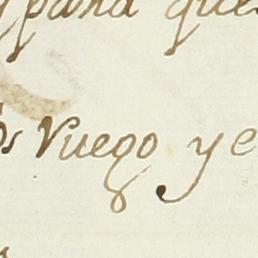 y para que
os Vuego y e